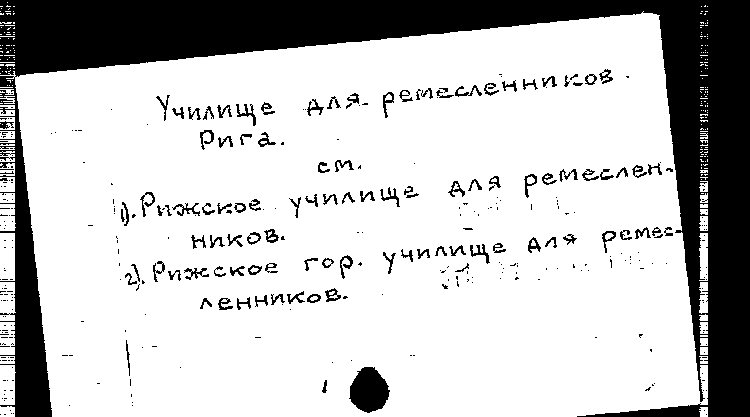 Училище для ремесленников.
Рига.
см.
1). Рижское училище для ремеслен-
ников.
2). Рижское гор. училище для ремес-
ленников.